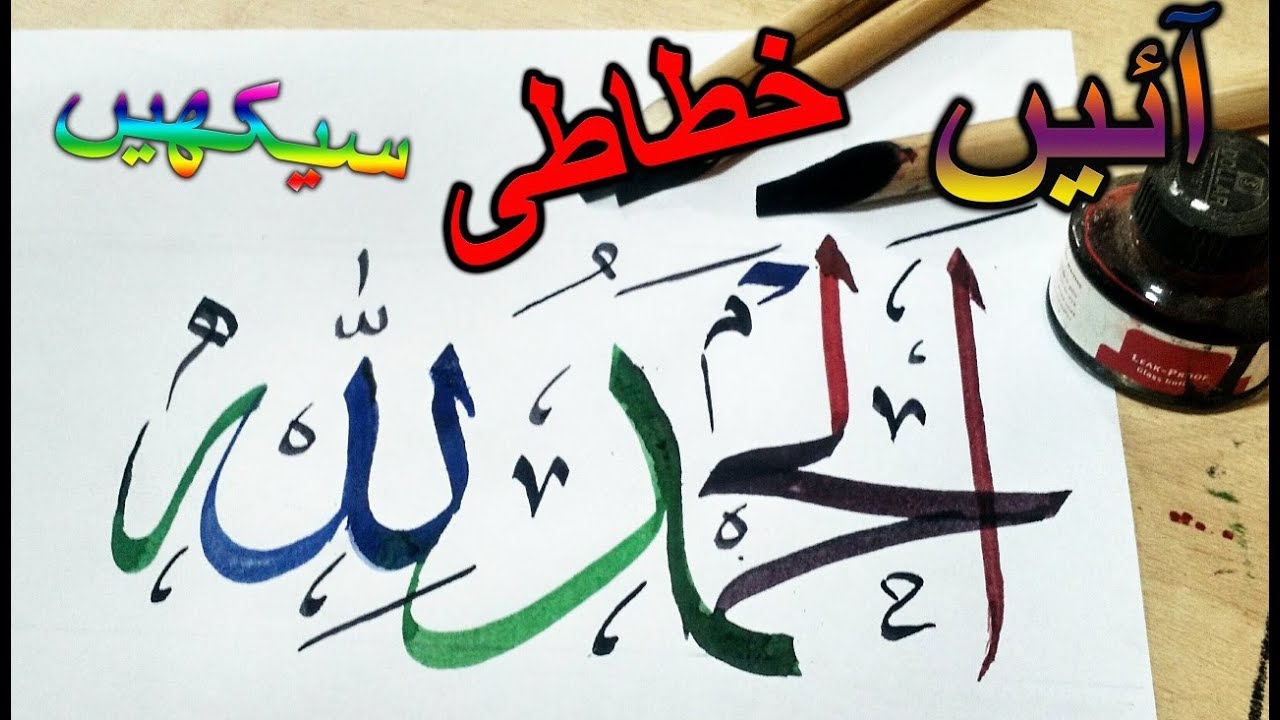 آئیں خطاطی سیکھیں
الحمد لله
LEAK-PROOF